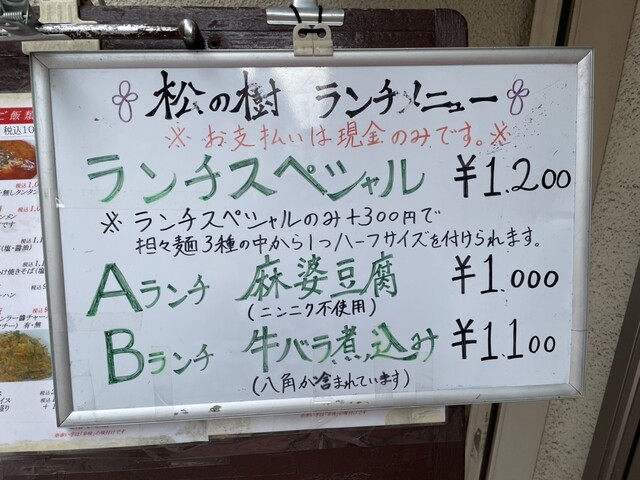 松の樹 ランチメニュー
※お支払いは現金のみです。※
ランチスペシャル ¥1.200
※ランチスペシャルのみ+300円で
担々麺3種の中から1つハーフサイズを付けられます。
Aランチ 麻婆豆腐 ¥1.000
(ニンニク不使用)
Bランチ 牛バラ煮込み ¥1.100
(八角が含まれています)
ご飯類
税込10